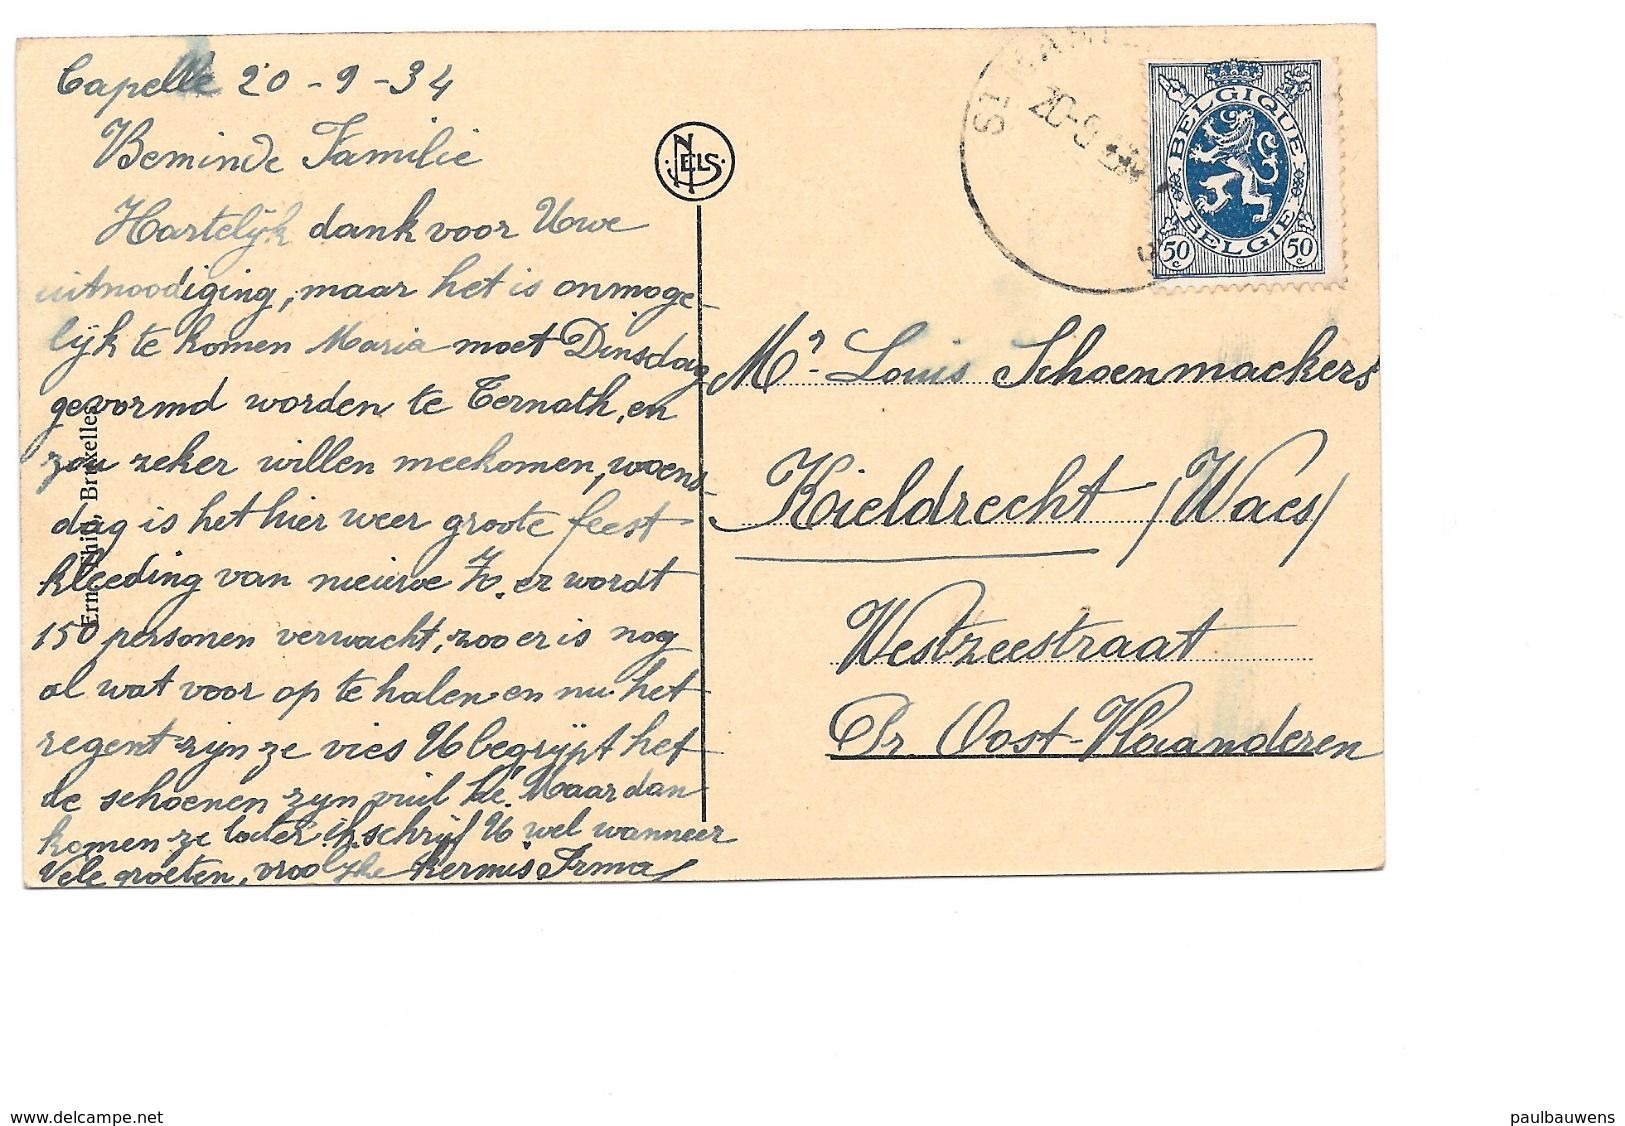 Capelle 20-9-34
Beminde Familie
Hartelijk dank voor Uwe
uitnoodiging, maar het is onmoge-
lijk te komen Maria moet Dinsdag
gevormd worden te Ternath, en
zou zeker willen meekomen, woens-
dag is het hier weer groote feest
kleeding van nieuwe Z. er wordt
150 personen verwacht, zoo er is nog
al wat voor op te halen en nu het
regent zijn ze vies U begrijpt het
de schoenen zijn vuil Maar dan
komen ze later ik schrijf U wel wanneer
Vele groeten, vroolijke kermis Irma
NELS
Ern. Thill, Bruxelles
20-9
BELGIQUE
BELGIE
50 c
50 c
Mr. Louis Schoenmackers
Kieldrecht (Waes)
Westzeestraat
Pr. Oost-Vlaanderen
www.delcampe.net
paulbauwens